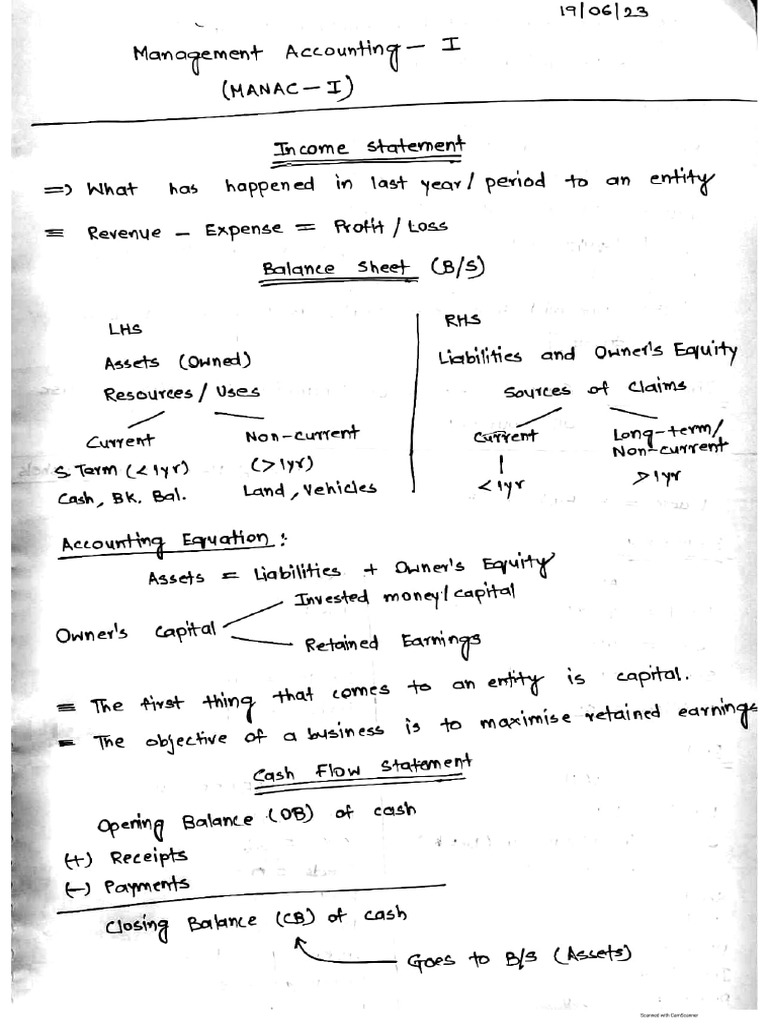 19/06/23
Management Accounting - I
(MANAC - I)
Income Statement
=> What has happened in last year/period to an entity
≡ Revenue - Expense = Profit/Loss
Balance Sheet (B/S)
LHS
Assets (Owned)
Resources/Uses
Current
Non-current
S. Term (<1yr)
(>1yr)
Cash, BK. Bal.
Land, Vehicles
RHS
Liabilities and Owner's Equity
Sources of Claims
Current
Long-term/
Non-current
<1yr
>1yr
Accounting Equation:
Assets = Liabilities + Owner's Equity
Invested money/capital
Owner's Capital
Retained Earnings
= The first thing that comes to an entity is capital.
= The objective of a business is to maximise retained earnings
Cash Flow Statement
Opening Balance (OB) of cash
(+) Receipts
(-) Payments
Closing Balance (CB) of cash
Goes to B/S (Assets)
Scanned with CamScanner